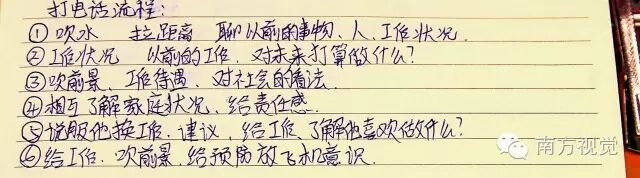 打电话流程：
①吹水 拉距离 聊以前的事物、人、工作状况
②工作状况 以前的工作、对未来打算做什么?
③吹前景、工作待遇、对社会的看法
④相互了解家庭状况、给责任感
⑤说服他换工作、建议、给工作、了解他喜欢做什么?
⑥给工作、吹前景、给预防放飞机意识
南方视觉